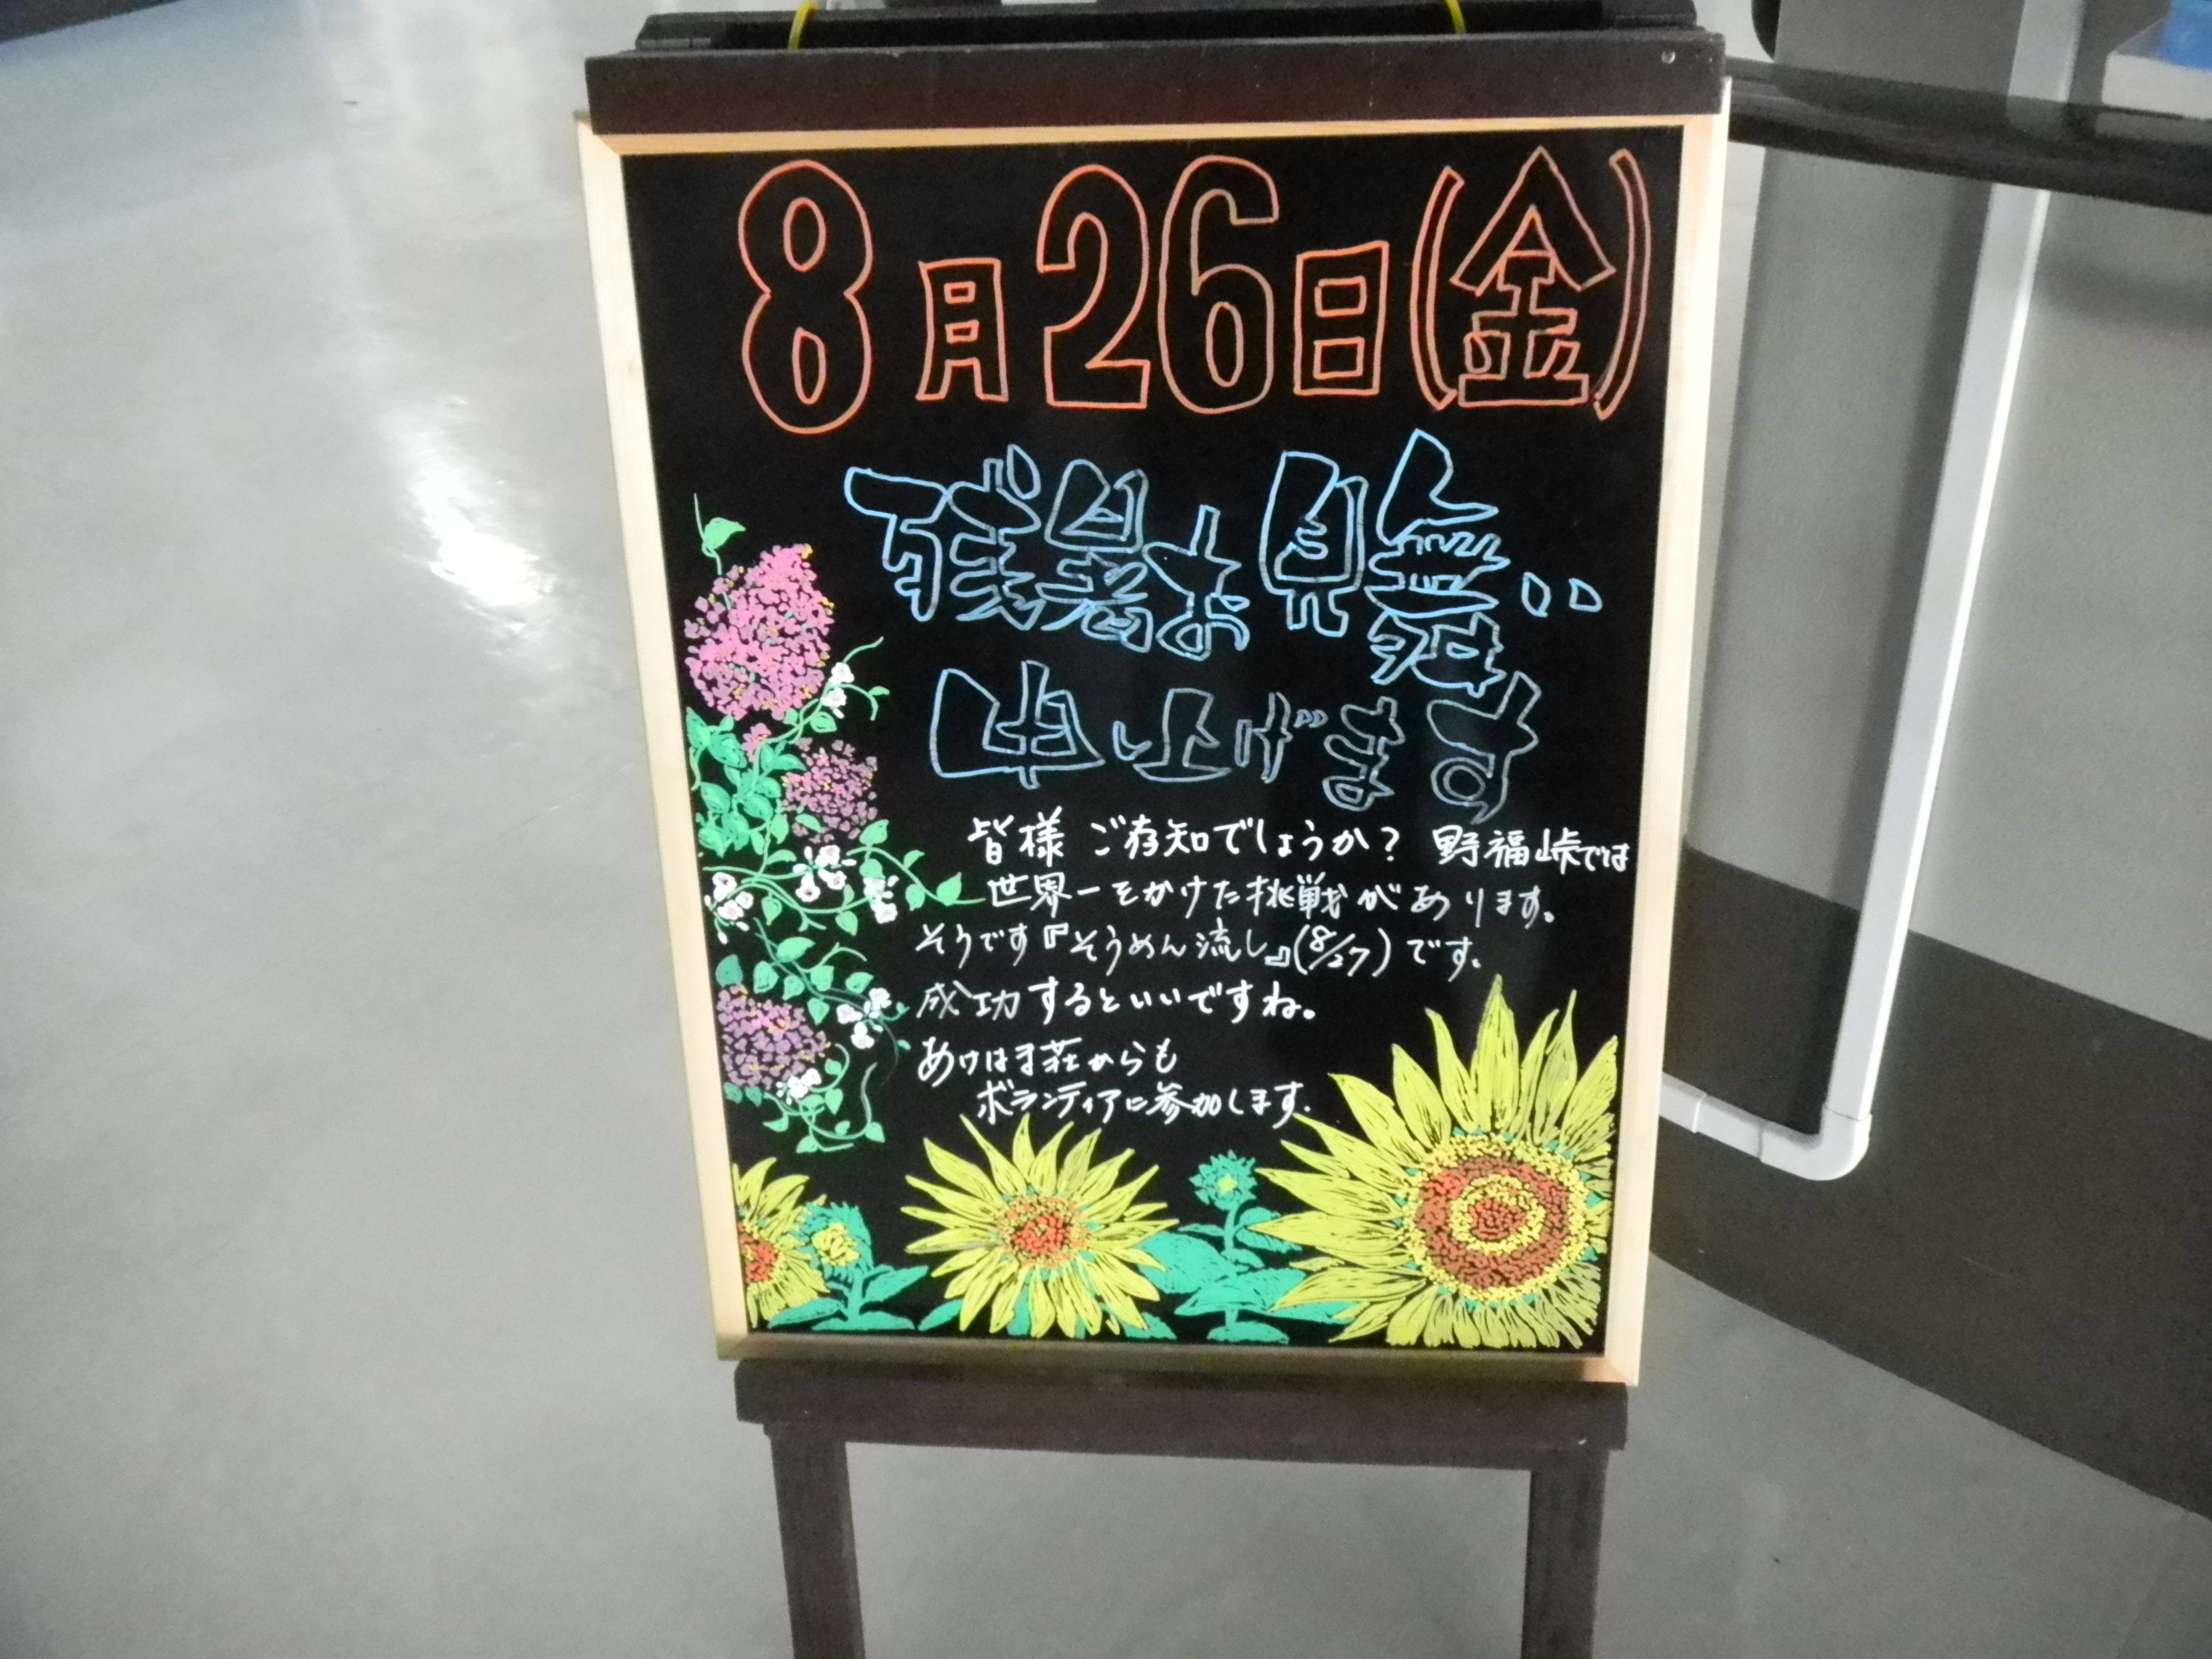 8月26日(金)
残暑お見舞い
申し上げます
皆様 ご存知でしょうか? 野福峠では
世界一をかけた挑戦があります。
そうです『そうめん流し』(8/27)です。
成功するといいですね。
あけはま荘からも
ボランティアに参加します.